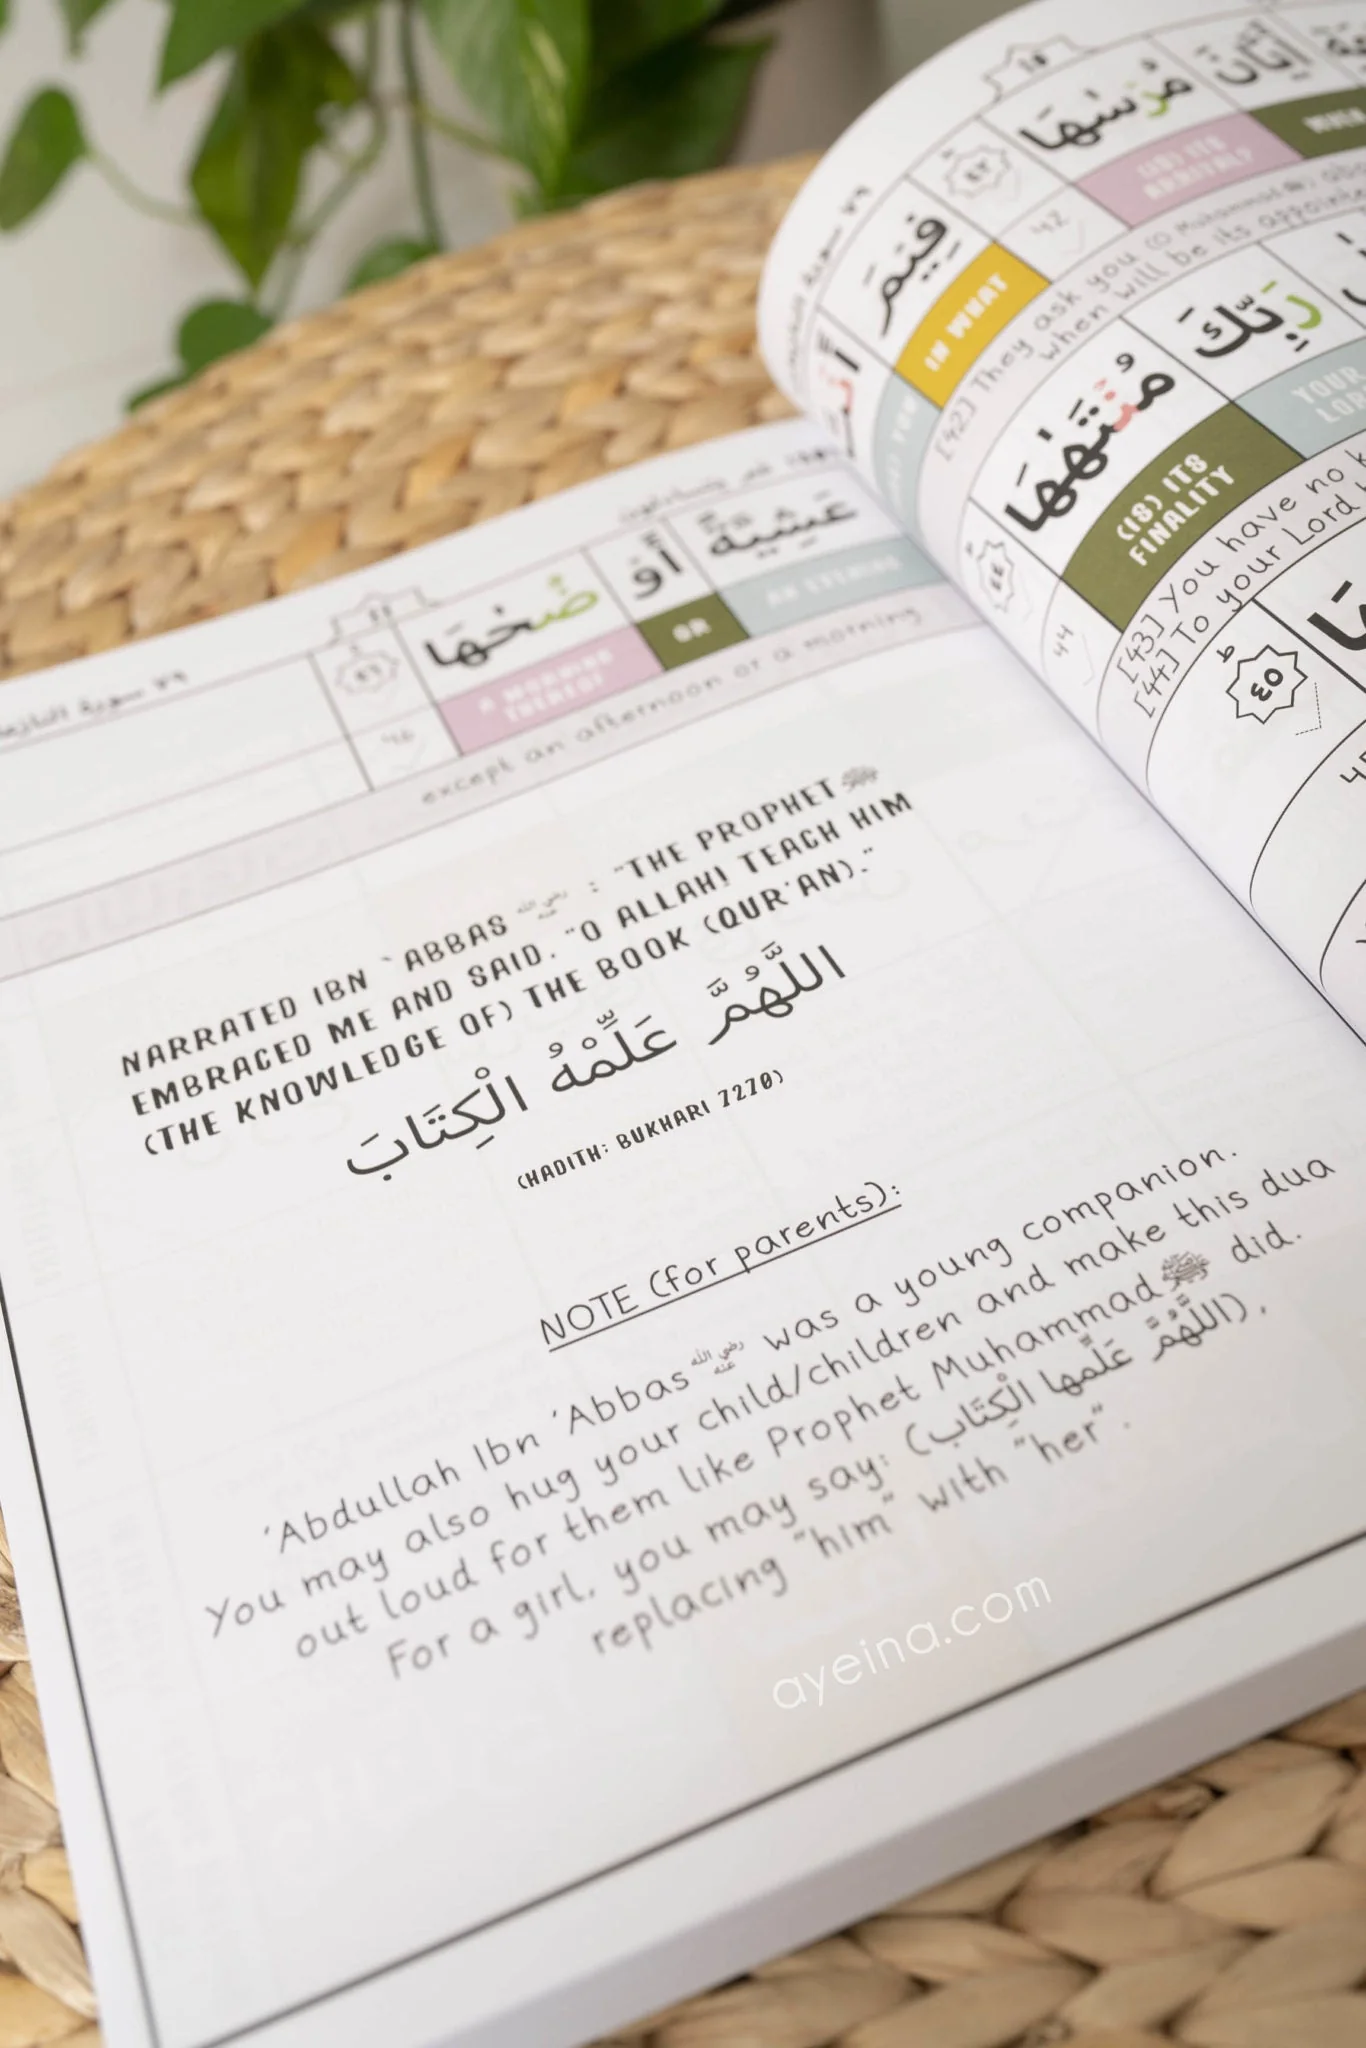 ٧٩ سورة
عَشِيَّةً أَوْ ضُحٰىهَا ٤٦
AN EVENING OR A MORNING THEREOF 46
except an afternoon or a morning
NARRATED IBN `ABBAS رضي الله عنه : "THE PROPHET ﷺ
EMBRACED ME AND SAID, "O ALLAH! TEACH HIM
(THE KNOWLEDGE OF) THE BOOK (QUR'AN)."
اللَّهُمَّ عَلِّمْهُ الْكِتَابَ
(HADITH: BUKHARI 7270)
NOTE (for parents):
'Abdullah Ibn 'Abbas رضي الله عنه was a young companion.
You may also hug your child/children and make this dua
out loud for them like Prophet Muhammad ﷺ did.
For a girl, you may say: (اللَّهُمَّ عَلِّمها الْكِتَاب),
replacing "him" with "her".
ayeina.com
أَيَّانَ مُرْسٰىهَا ٤٢
(IS) ITS ARRIVAL? 42
[42] They ask you (O Muhammad ﷺ)
when will be its
فِيمَ
IN WHAT
رَبِّكَ مُنْتَهٰىهَا ٤٤
YOUR LORD (IS) ITS FINALITY 44
[43] You have no
[44] To your Lord
٤٥